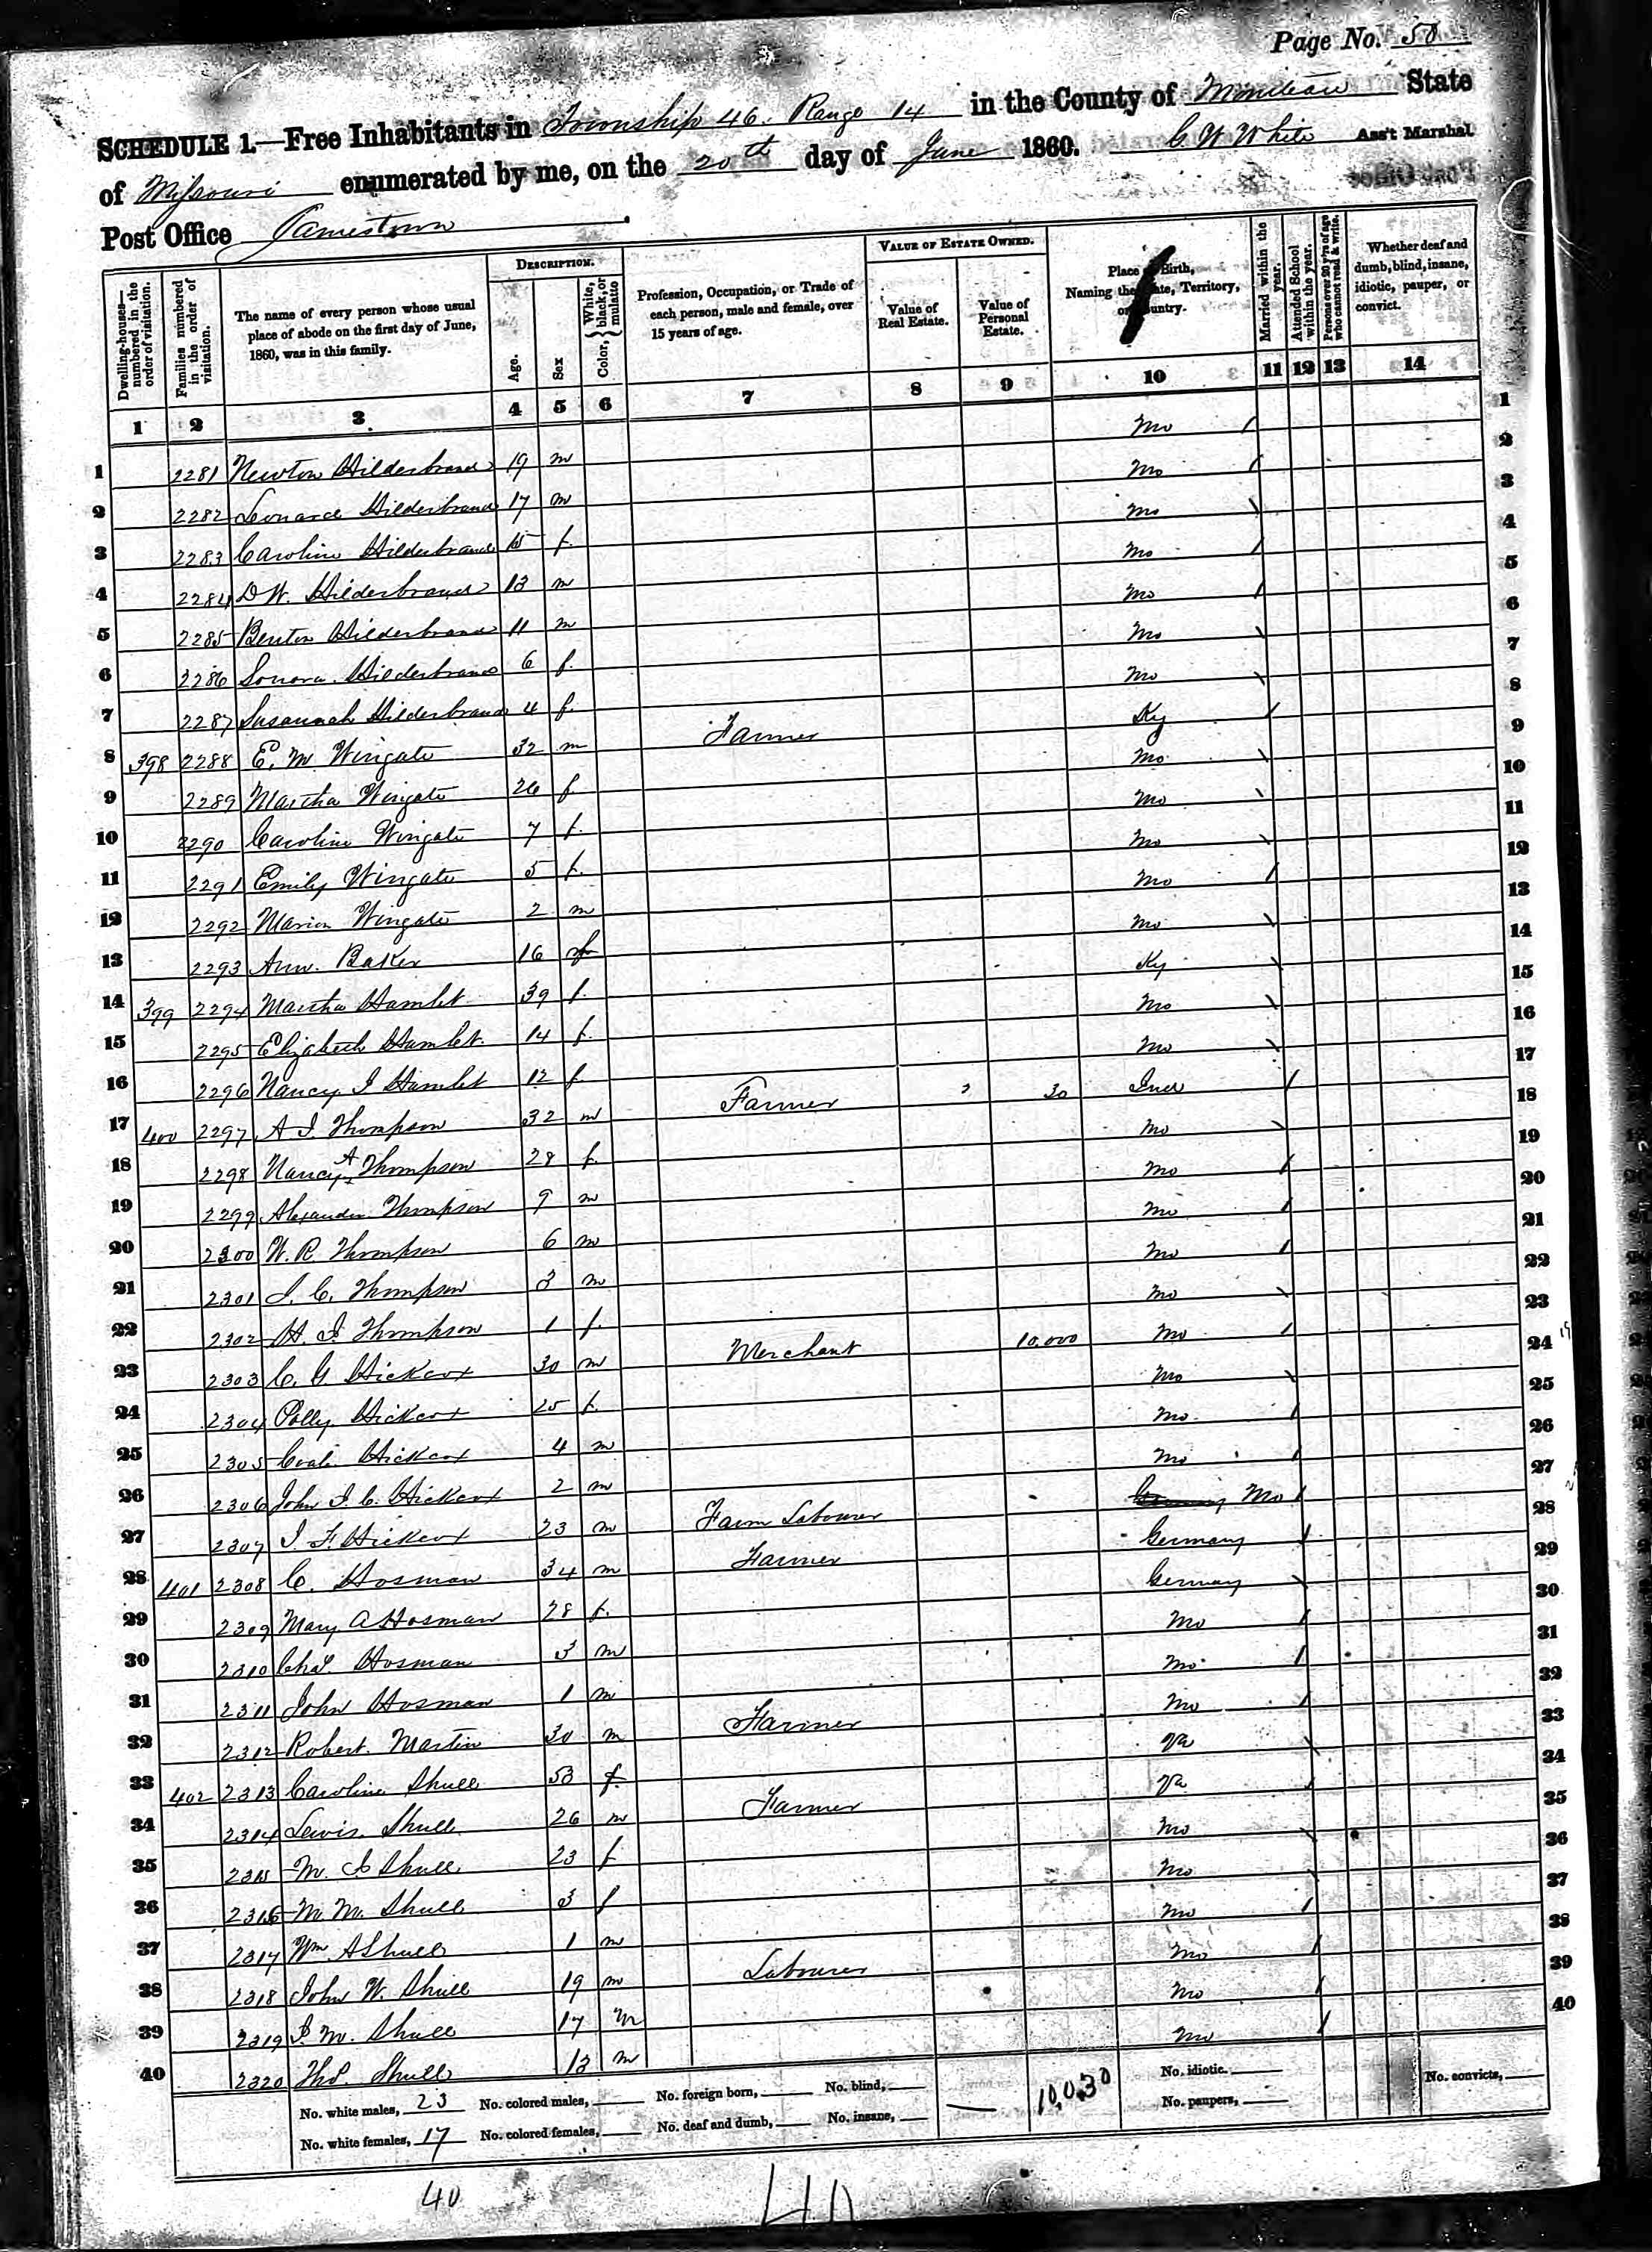 Page No. 50
SCHEDULE 1.—Free Inhabitants in Township 46. Range 14 in the County of Moniteau State
of Missouri enumerated by me, on the 20th day of June 1860. C W White Ass't Marshal
Post Office Jamestown
Dwelling-houses—numbered in the order of visitation. Families numbered in the order of visitation. The name of every person whose usual place of abode on the first day of June, 1860, was in this family. DESCRIPTION. Age. Sex Color, { White, black, or mulatto Profession, Occupation, or Trade of each person, male and female, over 15 years of age. VALUE OF ESTATE OWNED. Value of Real Estate. Value of Personal Estate. Place Birth, Naming the State, Territory, or Country. Married within the year. Attended School within the year. Persons over 20 y'rs of age who cannot read & write. Whether deaf and dumb, blind, insane, idiotic, pauper, or convict.
1 2 3 4 5 6 7 8 9 10 11 12 13 14
1 2281 Newton Hilderbrand 19 m Mo 1
2 2282 Leonard Hilderbrand 17 m Mo 2
3 2283 Caroline Hilderbrand 15 f. Mo 3
4 2284 D W. Hilderbrand 13 m Mo 4
5 2285 Benton Hilderbrand 11 m Mo 5
6 2286 Sonora Hilderbrand 6 f. Mo 6
7 2287 Susannah Hilderbrand 4 f. Mo 7
8 398 2288 E. M Wingate 32 m Farmer Ky 8
9 2289 Martha Wingate 26 f. Mo 9
10 2290 Caroline Wingate 7 f. Mo 10
11 2291 Emily Wingate 5 f. Mo 11
12 2292 Marion Wingate 2 m Mo 12
13 2293 Ann. Baker 16 f Mo 13
14 399 2294 Martha Hamlet 39 f. Ky 14
15 2295 Elizabeth Hamlet. 14 f. Mo 15
16 2296 Nancy J Hamlet 12 f Mo 16
17 400 2297 A J. Thompson 32 m Farmer 30 Ind 17
18 2298 Nancy A Thompson 28 f. Mo 18
19 2299 Alexander Thompson 9 m Mo 19
20 2300 W. R. Thompson 6 m Mo 20
21 2301 J. C. Thompson 3 m Mo 21
22 2302 H. J Thompson 1 f. Mo 22
23 2303 C. G. Hickcox 30 m Merchant 10.000 Mo 23
24 2304 Polly Hickcox 25 f. Mo 24
25 2305 Hickcox 4 m Mo 25
26 2306 John J. C. Hickcox 2 m Mo 26
27 2307 J. F. Hickcox 23 m Farm Labourer Germany Mo 27
28 401 2308 C. Hosman 34 m Farmer Germany 28
29 2309 Mary A Hosman 28 f. Germany 29
30 2310 Chas Hosman 3 m Mo 30
31 2311 John Hosman 1 m Mo 31
32 2312 Robert. Martin 30 m Farmer Mo 32
33 402 2313 Caroline Shull 53 f. Va 33
34 2314 Lewis. Shull 26 m Farmer Va 34
35 2315 M. J Shull 23 f Mo 35
36 2316 M. M. Shull 3 f Mo 36
37 2317 Wm A Shull 1 m Mo 37
38 2318 John W. Shull 19 m Labourer Mo 38
39 2319 J. M. Shull 17 m Mo 39
40 2320 Thos. Shull 13 m Mo 40
No. white males, 23 No. colored males, No. foreign born, No. blind, 10,030 No. idiotic. No. convicts,
No. white females, 17 No. colored females, No. deaf and dumb, No. insane, No. paupers,
40 40